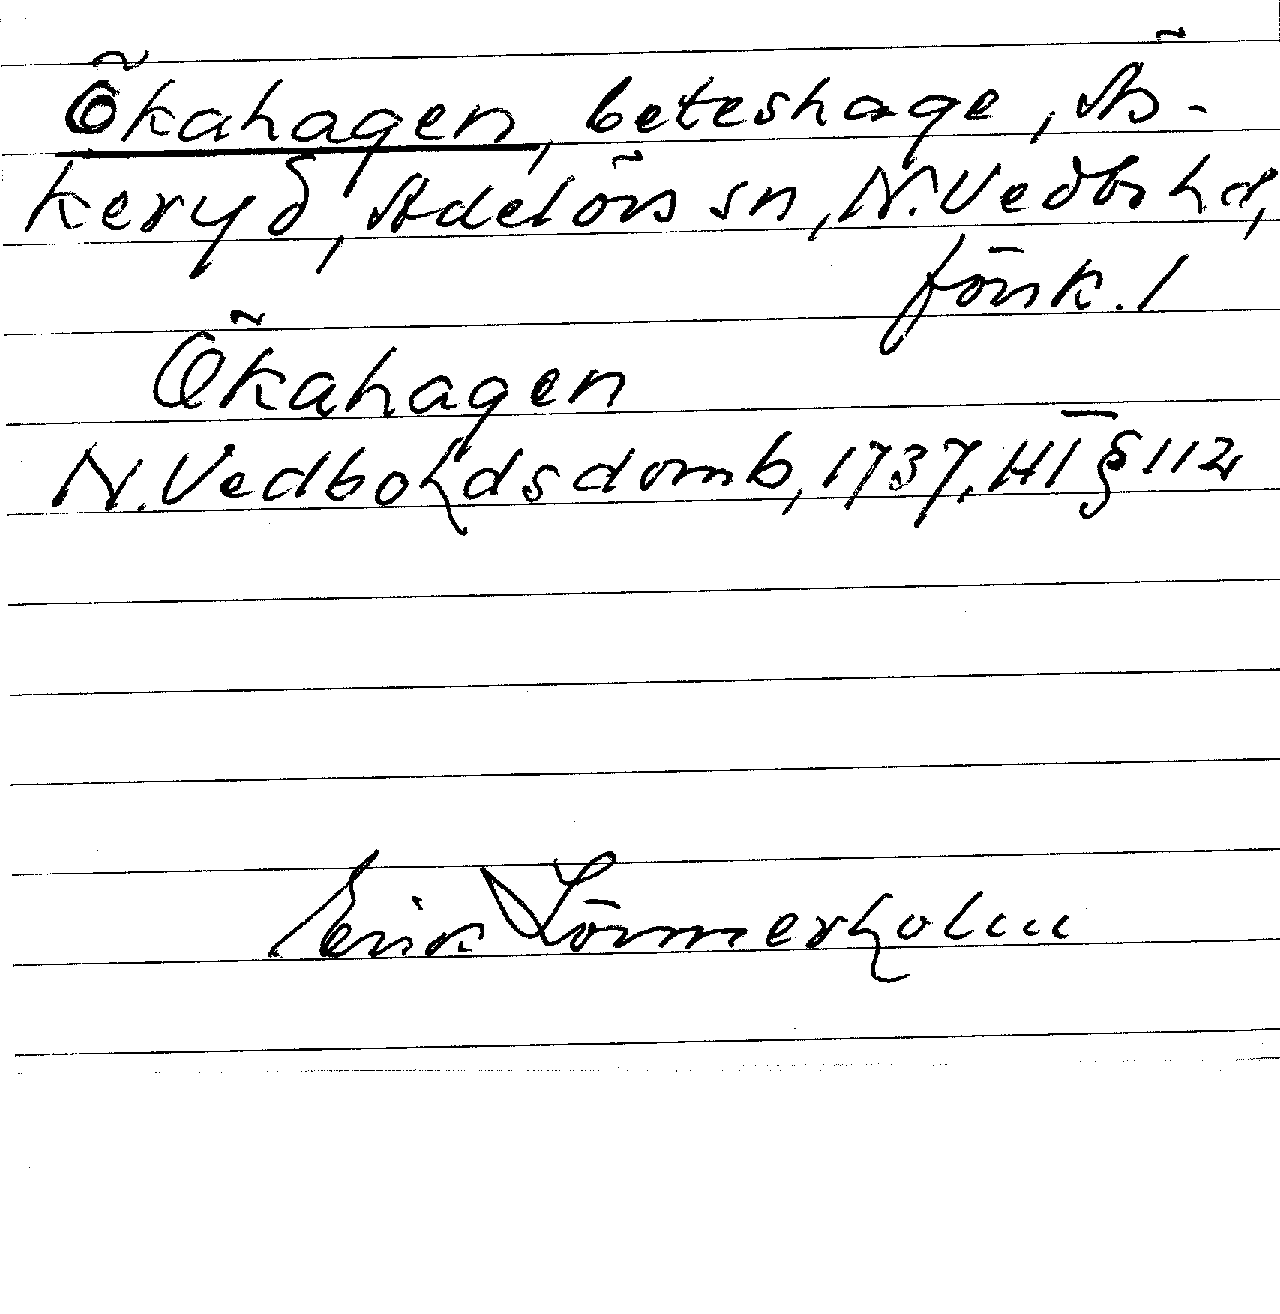 Ökahagen, beteshage, Äs-
keryd, Adelövs sn, N. Vedbo hd,
Jönk. l
Ökahagen
N. Vedbohdsdomb, 1737, HT § 112
Erik Törmerholm